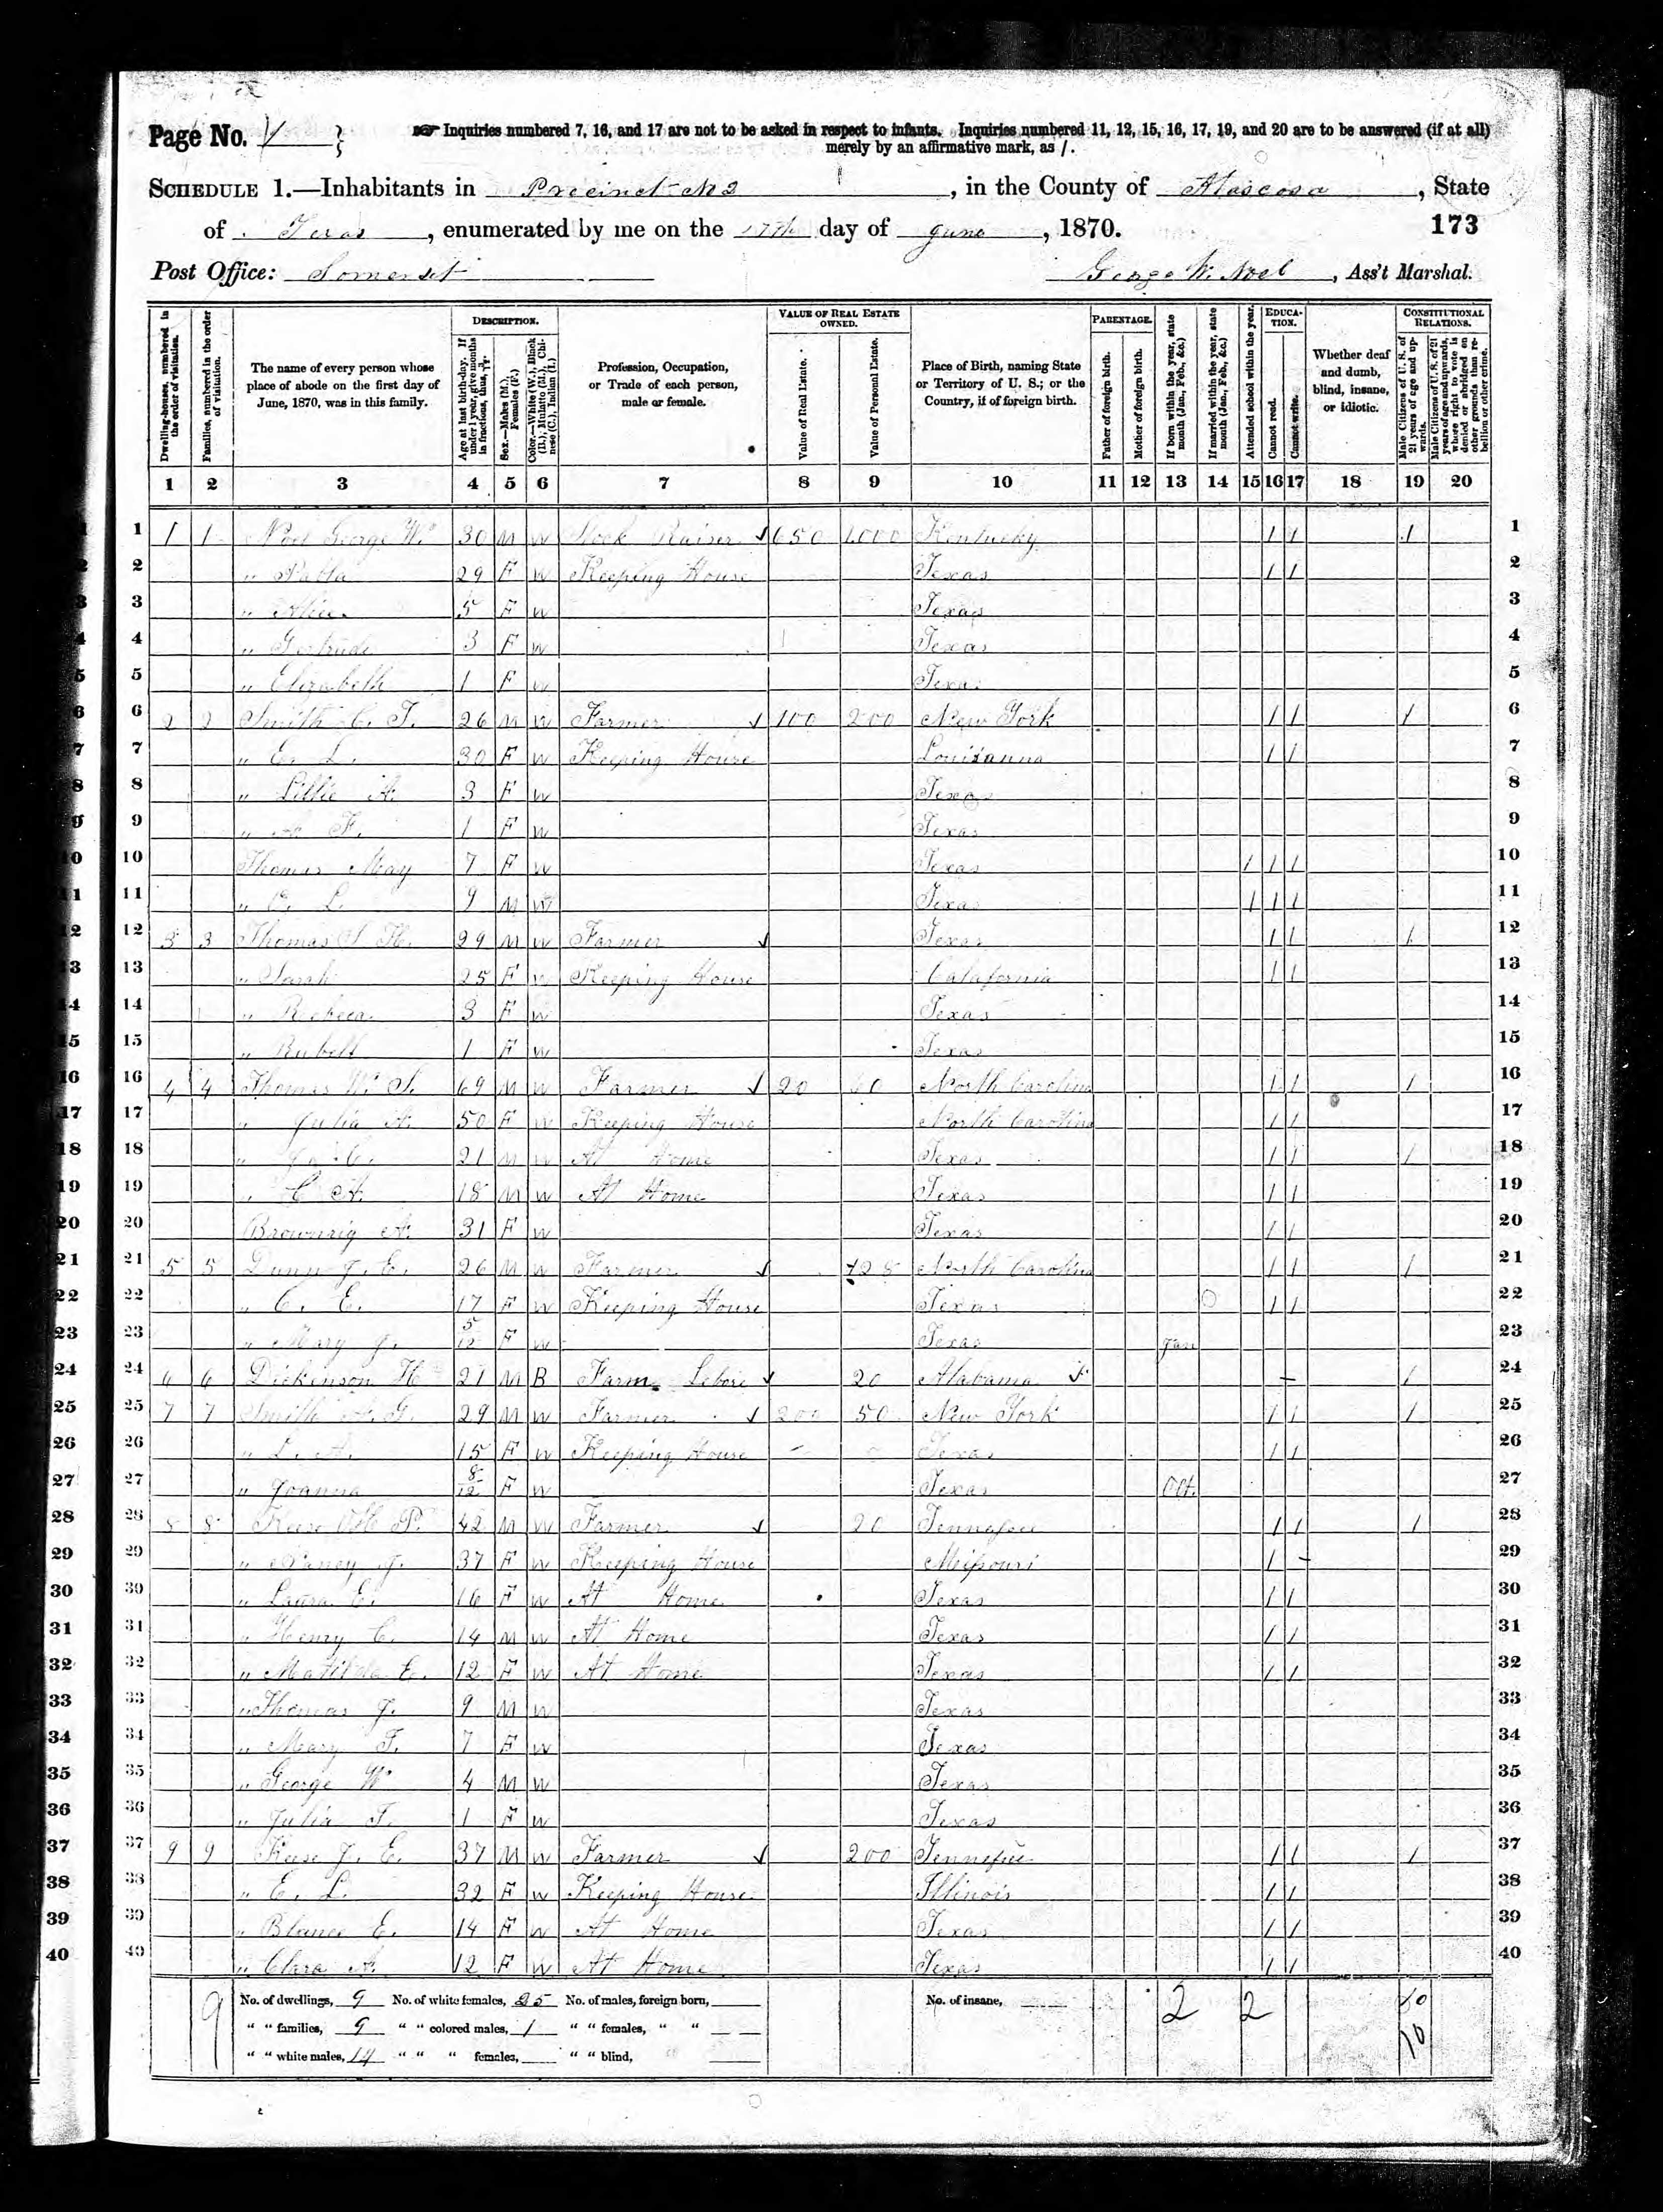 Page No. 1
☞ Inquiries numbered 7, 16, and 17 are not to be asked in respect to infants. Inquiries numbered 11, 12, 15, 16, 17, 19, and 20 are to be answered (if at all)
merely by an affirmative mark, as /.
SCHEDULE 1.—Inhabitants in Precinct No 2, in the County of Atascosa, State
of Texas, enumerated by me on the 17th day of June, 1870. 173
Post Office: Somerset George W. Noel, Ass't Marshal.
Dwelling-houses, numbered in the order of visitation.
Families, numbered in the order of visitation.
The name of every person whose place of abode on the first day of June, 1870, was in this family.
DESCRIPTION.
Age at last birth-day. If under 1 year, give months in fractions, thus,
Sex.—Males (M.), Females (F.)
Color.—White (W.), Black (B.), Mulatto (M.), Chinese (C.), Indian (I.)
Profession, Occupation, or Trade of each person, male or female.
VALUE OF REAL ESTATE OWNED.
Value of Real Estate.
Value of Personal Estate.
Place of Birth, naming State or Territory of U. S.; or the Country, if of foreign birth.
PARENTAGE.
Father of foreign birth.
Mother of foreign birth.
If born within the year, state month (Jan., Feb., &c.)
If married within the year, state month (Jan., Feb., &c.)
Attended school within the year.
EDUCATION.
Cannot read.
Cannot write.
Whether deaf and dumb, blind, insane, or idiotic.
CONSTITUTIONAL RELATIONS.
Male Citizens of U. S. of 21 years of age and upwards.
Male Citizens of U. S. of 21 years of age and upwards, whose right to vote is denied or abridged on other grounds than rebellion or other crime.
1 2 3 4 5 6 7 8 9 10 11 12 13 14 15 16 17 18 19 20
1 1 1 Noel George W. 30 M W Stock Raiser 650 1,000 Kentucky / / / 1
2 " 29 F W Keeping House Texas / / 2
3 " Alice 5 F W Texas 3
4 " Gertrude 3 F W Texas 4
5 " Elizabeth 1 F W Texas 5
6 2 2 Smith C. T. 26 M W Farmer 100 200 New York / / / 6
7 " E. L. 30 F W Keeping House Louisianna / / 7
8 " Lillie A. 3 F W Texas 8
9 " F. 1 F W Texas 9
10 Thomas May 7 F W Texas / / / 10
11 " L. 9 M W Texas / / / 11
12 3 3 Thomas S. H. 29 M W Farmer Texas / / / 12
13 " Sarah 25 F W Keeping House Calafornia / / 13
14 " Rebeca 3 F W Texas 14
15 " Rubell 1 F W Texas 15
16 4 4 Thomas W. S. 69 M W Farmer 20 North Carolina / / / 16
17 " Julia A. 50 F W Keeping House North Carolina / / 17
18 " C. 21 M W At Home Texas / / / 18
19 " C. A. 18 M W At Home Texas / / 19
20 Brownrig A. 31 F W Texas / / 20
21 5 5 Dunn J. E. 26 M W Farmer 428 North Carolina / / / 21
22 " C. E. 17 F W Keeping House Texas / / 22
23 " Mary J. 5/12 F W Texas Jan 23
24 6 6 Dickinson H 21 M B Farm Labore 20 Alabama - / 24
25 7 7 Smith A. G. 29 M W Farmer 200 50 New York / / / 25
26 " L. A. 15 F W Keeping House Texas / / 26
27 " Joanna 8/12 F W Texas Oct. 27
28 8 8 Keese H. P. 42 M W Farmer 20 Tennessee / / / 28
29 " Naney J. 37 F W Keeping House Missouri / - 29
30 " Laura E. 16 F W At Home Texas / / 30
31 " Henry C. 14 M W At Home Texas / / 31
32 " Matilda E. 12 F W At Home Texas / / 32
33 " Thomas J. 9 M W Texas 33
34 " Mary F. 7 F W Texas 34
35 " George W. 4 M W Texas 35
36 " Julia F. 1 F W Texas 36
37 9 9 Keese J. E. 37 M W Farmer 200 Tennessee / / / 37
38 " E. L. 32 F W Keeping House Illinois / / 38
39 " Blance E. 14 F W At Home Texas / / 39
40 " Clara A. 12 F W At Home Texas / / 40
9 No. of dwellings, 9 No. of white females, 25 No. of males, foreign born, No. of insane, 2 2 10
" " families, 9 " " colored males, 1 " " females, " " 10
" " white males, 14 " " " females, " " blind,